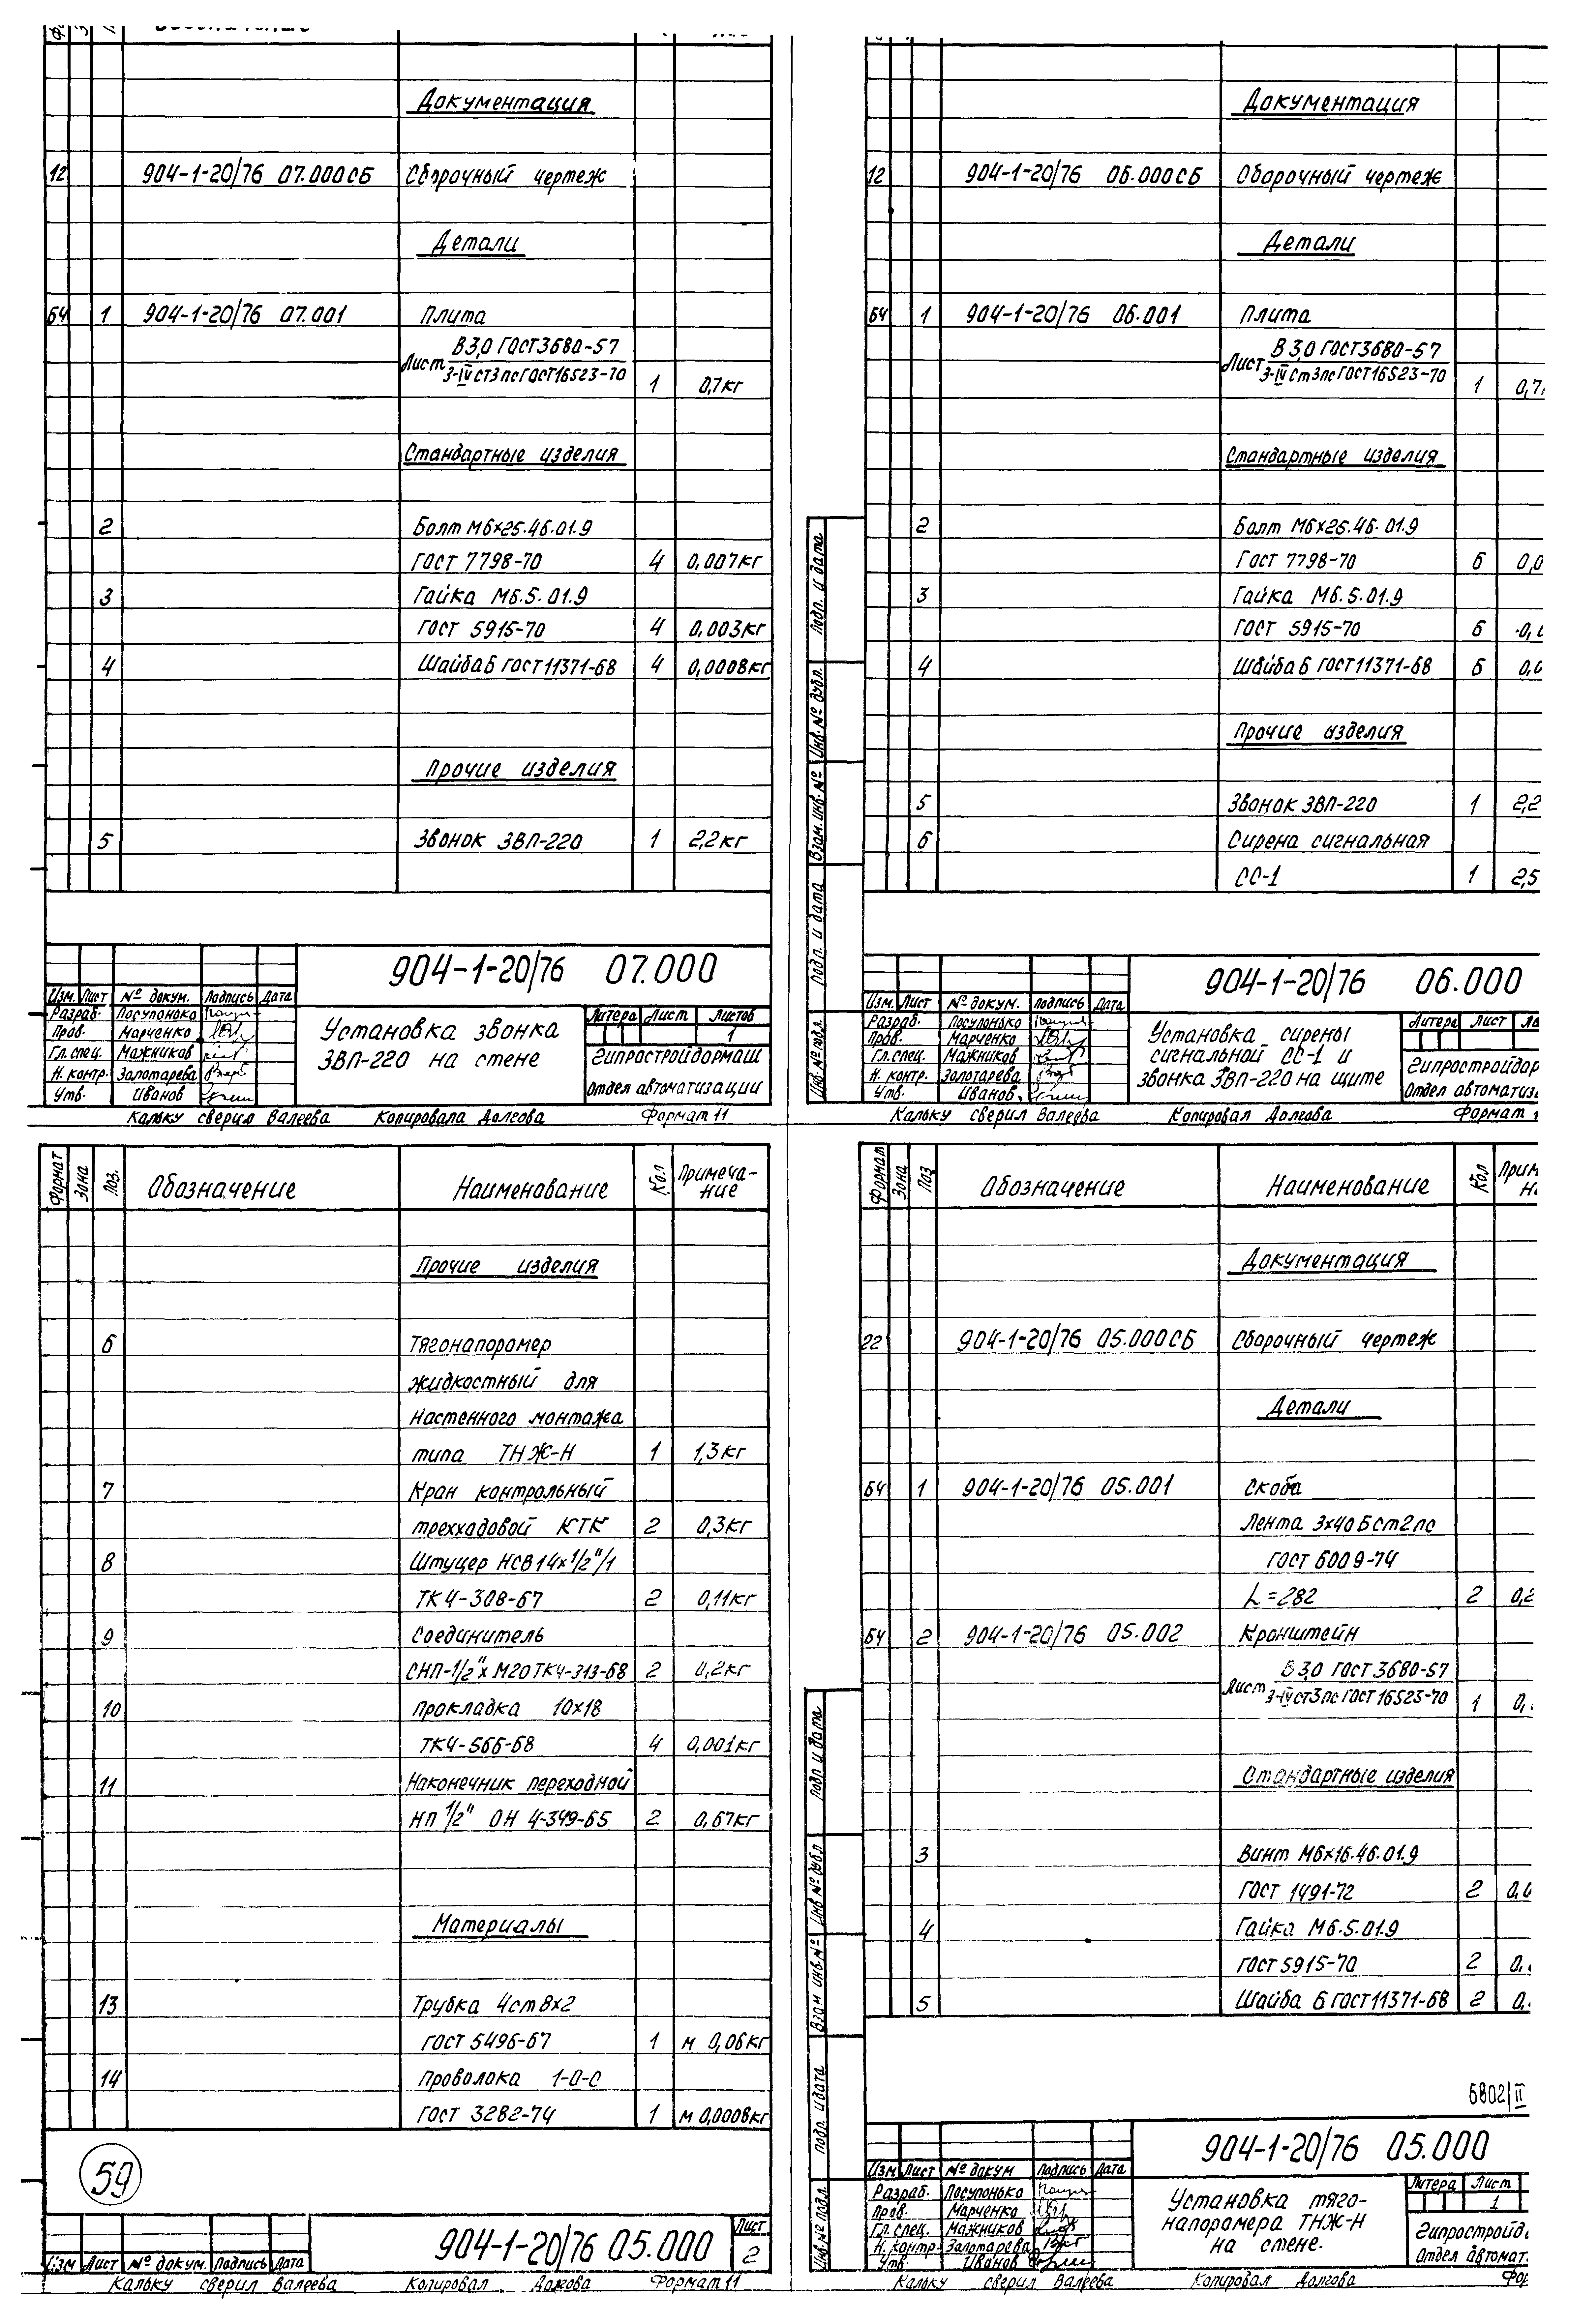 Документация
12 904-1-20/76 07.000СБ Сборочный чертеж
Детали
БЧ 1 904-1-20/76 07.001 Плита
Лист В 3,0 ГОСТ 3680-57
3-IV Ст3пс ГОСТ 16523-70 1 0,7кг
Стандартные изделия
2 Болт М6×25.46.01.9
ГОСТ 7798-70 4 0,007кг
3 Гайка М6.5.01.9
ГОСТ 5915-70 4 0,003кг
4 Шайба 6 ГОСТ 11371-68 4 0,0008кг
Прочие изделия
5 Звонок ЗВП-220 1 2,2кг
904-1-20/76 07.000
Изм. Лист № докум. Подпись Дата
Разраб. Посупонько
Пров. Марченко
Гл.спец. Мажников
Н. контр. Золотарева
Утв. Иванов
Установка звонка
ЗВП-220 на стене
Литера Лист Листов
1
Гипростройдормаш
Отдел автоматизации
Кальку сверил Валеева Копировала Долгова Формат 11
Документация
12 904-1-20/76 06.000СБ Сборочный чертеж
Детали
БЧ 1 904-1-20/76 06.001 Плита
Лист В 3,0 ГОСТ 3680-57
3-IV Ст3пс ГОСТ 16523-70 1 0,7
Стандартные изделия
2 Болт М6×25.46.01.9
ГОСТ 7798-70 6 0,0
3 Гайка М6.5.01.9
ГОСТ 5915-70 6 0,
4 Шайба 6 ГОСТ 11371-68 6 0,0
Прочие изделия
5 Звонок ЗВП-220 1 2,2
6 Сирена сигнальная
СС-1 1 2,5
Подп. и дата
Инв. № дубл.
Взам. инв. №
Подп. и дата
Инв. № подл.
904-1-20/76 06.000
Изм. Лист № докум. Подпись Дата
Разраб. Посупонько
Пров. Марченко
Гл.спец. Мажников
Н. контр. Золотарева
Утв. Иванов
Установка сирены
сигнальной СС-1 и
звонка ЗВП-220 на щите
Литера Лист
Гипростройдор
Отдел автоматиз
Кальку сверил Валеева Копировал Долгова Формат 1
Формат Зона Поз. Обозначение Наименование Кол Примеча-
ние
Прочие изделия
6 Тягонапоромер
жидкостный для
настенного монтажа
типа ТНЖ-Н 1 1,3кг
7 Кран контрольный
трехходовой КТК 2 0,3кг
8 Штуцер НСВ 14×1/2"/1
ТК4-308-67 2 0,11кг
9 Соединитель
СНП-1/2"×М20 ТК4-313-68 2 0,2кг
10 Прокладка 10×18
ТК4-566-68 4 0,001кг
11 Наконечник переходной
НП 1/2" ОН 4-349-65 2 0,67кг
Материалы
13 Трубка 4ст 8×2
ГОСТ 5496-67 1 м 0,06кг
14 Проволока 1-О-С
ГОСТ 3282-74 1 м 0,0008кг
59
904-1-20/76 05.000
Лист
2
Изм Лист № докум. Подпись Дата
Кальку сверил Валеева Копировал Формат 11
Формат Зона Поз Обозначение Наименование Кол Прим
Документация
22 904-1-20/76 05.000СБ Сборочный чертеж
Детали
БЧ 1 904-1-20/76 05.001 Скоба
Лента 3×40 Б ст2пс
ГОСТ 6009-74
L=282 2 0,2
БЧ 2 904-1-20/76 05.002 Кронштейн
Лист В 3,0 ГОСТ 3680-57
3-IV ст3пс ГОСТ 16523-70 1 0,
Стандартные изделия
3 Винт М6×16.46.01.9
ГОСТ 1491-72 2 0,0
4 Гайка М6.5.01.9
ГОСТ 5915-70 2 0,
5 Шайба 6 ГОСТ 11371-68 2 0,
Подп и дата
Инв № дубл
Взам инв. №
Подп. и дата
Инв. № подл.
6802/II
904-1-20/76 05.000
Изм Лист № докум Подпись Дата
Разраб. Посупонько
Пров. Марченко
Гл. спец. Мажников
Н. контр Золотарева
Утв. Иванов
Установка тяго-
напорамера ТНЖ-Н
на стене.
Литера Лист
1
Гипростройд
Отдел автомат.
Кальку сверил Валеева Копировал Долгова